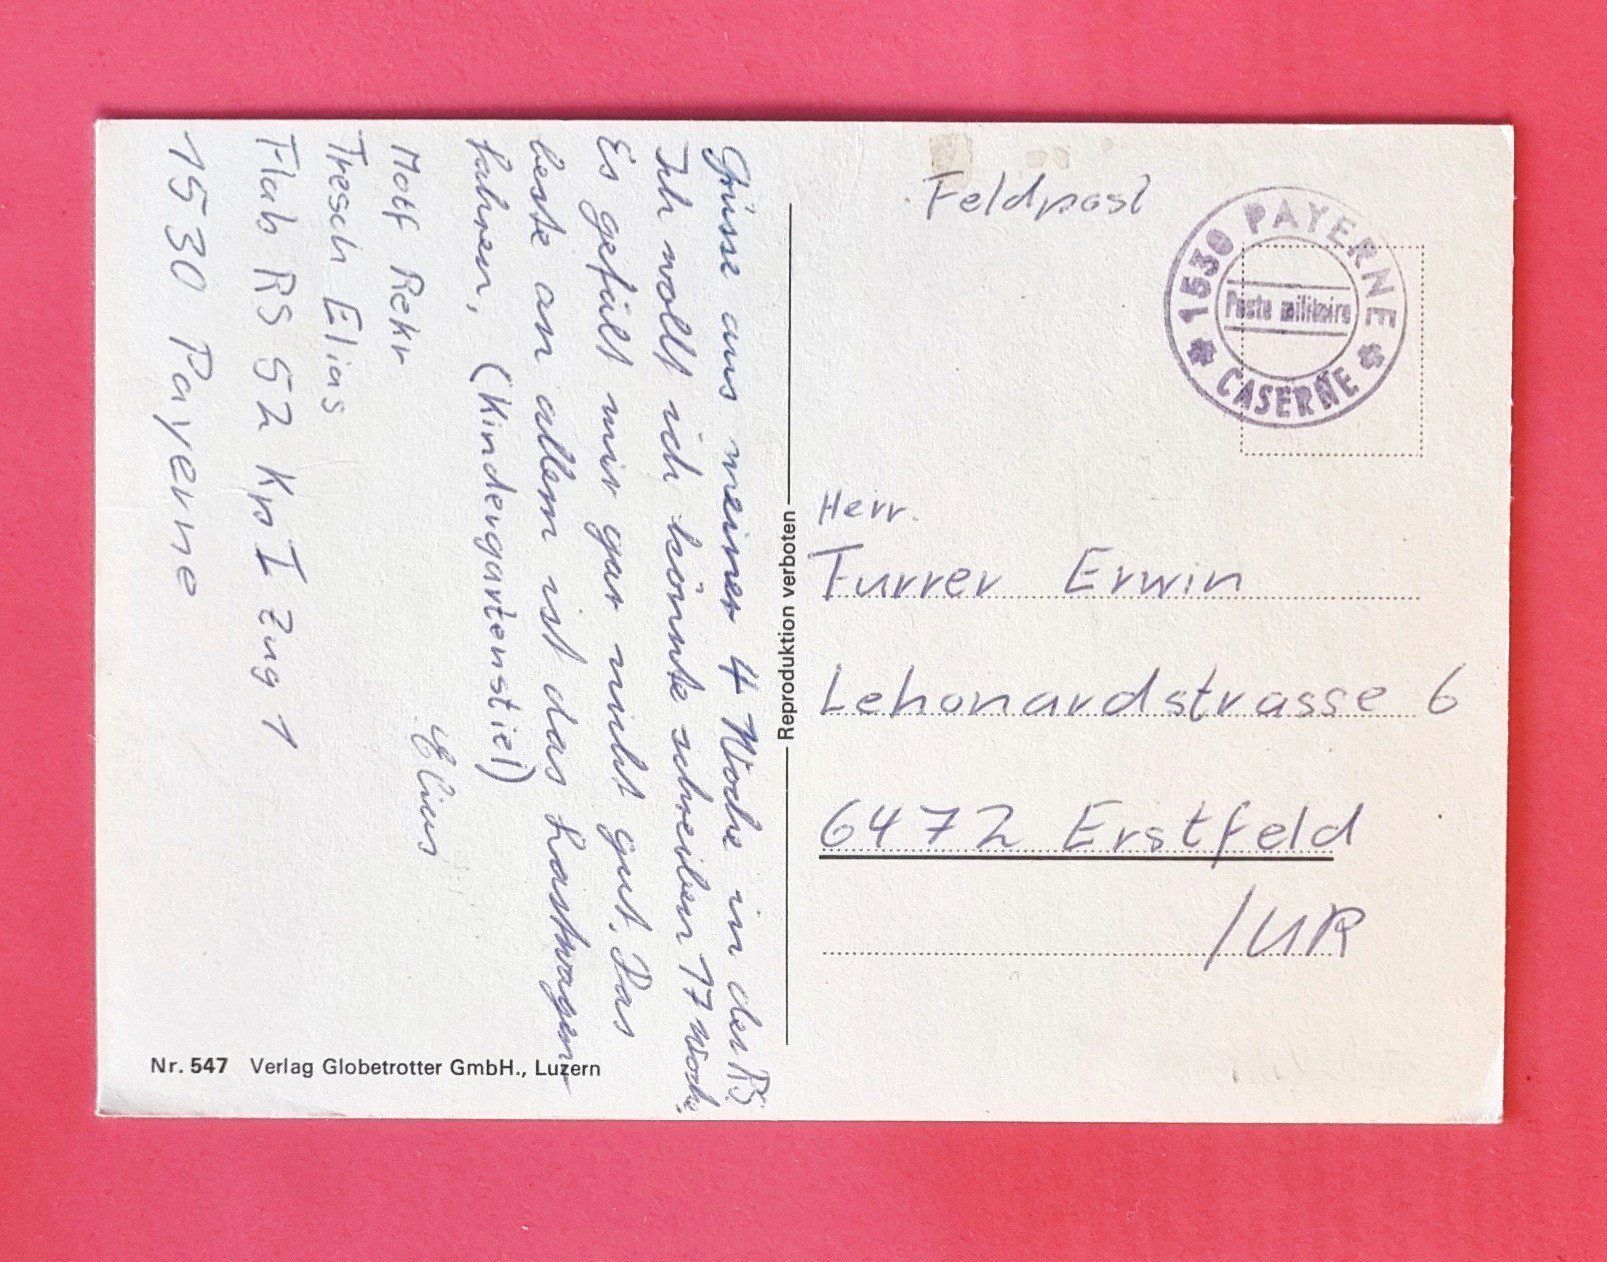 Grüsse aus meiner 4 Woche in der RS
Ich wollt ich könnte schreiben 17 Woche,
Es gefält mir gar nicht gut. Das
beste an allem ist das Lastwagen
fahren, (Kindergartenstiel)
Elias
Motf Rekr
Tresch Elias
Flab RS 52 Kp I Zug 1
1530 Payerne
Nr. 547 Verlag Globetrotter GmbH., Luzern
Reproduktion verboten
Feldpost
1530 PAYERNE
Poste militaire
CASERNE
Herr.
Furrer Erwin
Lehonardstrasse 6
6472 Erstfeld
/UR